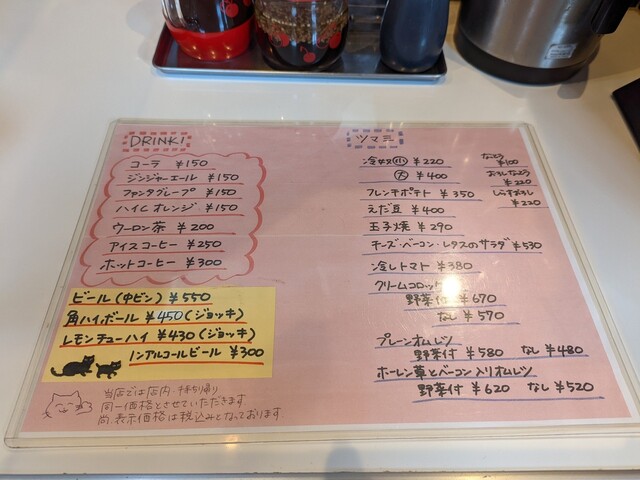 DRINK!
コーラ ¥150
ジンジャーエール ¥150
ファンタグレープ ¥150
ハイC オレンジ ¥150
ウーロン茶 ¥200
アイスコーヒー ¥250
ホットコーヒー ¥300
ビール(中ビン) ¥550
角ハイボール ¥450(ジョッキ)
レモンチューハイ ¥430(ジョッキ)
ノンアルコールビール ¥300
当店では店内・持ち帰り
同一価格とさせていただきます。
尚、表示価格は税込みとなっております。
ツマミ
冷奴 小 ¥220
大 ¥400
フレンチポテト ¥350
えだ豆 ¥400
玉子焼 ¥290
チーズ・ベーコン・レタスのサラダ ¥530
冷しトマト ¥380
クリームコロッケ
野菜付 ¥670
なし ¥570
プレーンオムレツ
野菜付 ¥580 なし ¥480
ホーレン草とベーコン入りオムレツ
野菜付 ¥620 なし ¥520
なっとう
¥100
おろしなっとう
¥220
しらすおろし
¥220